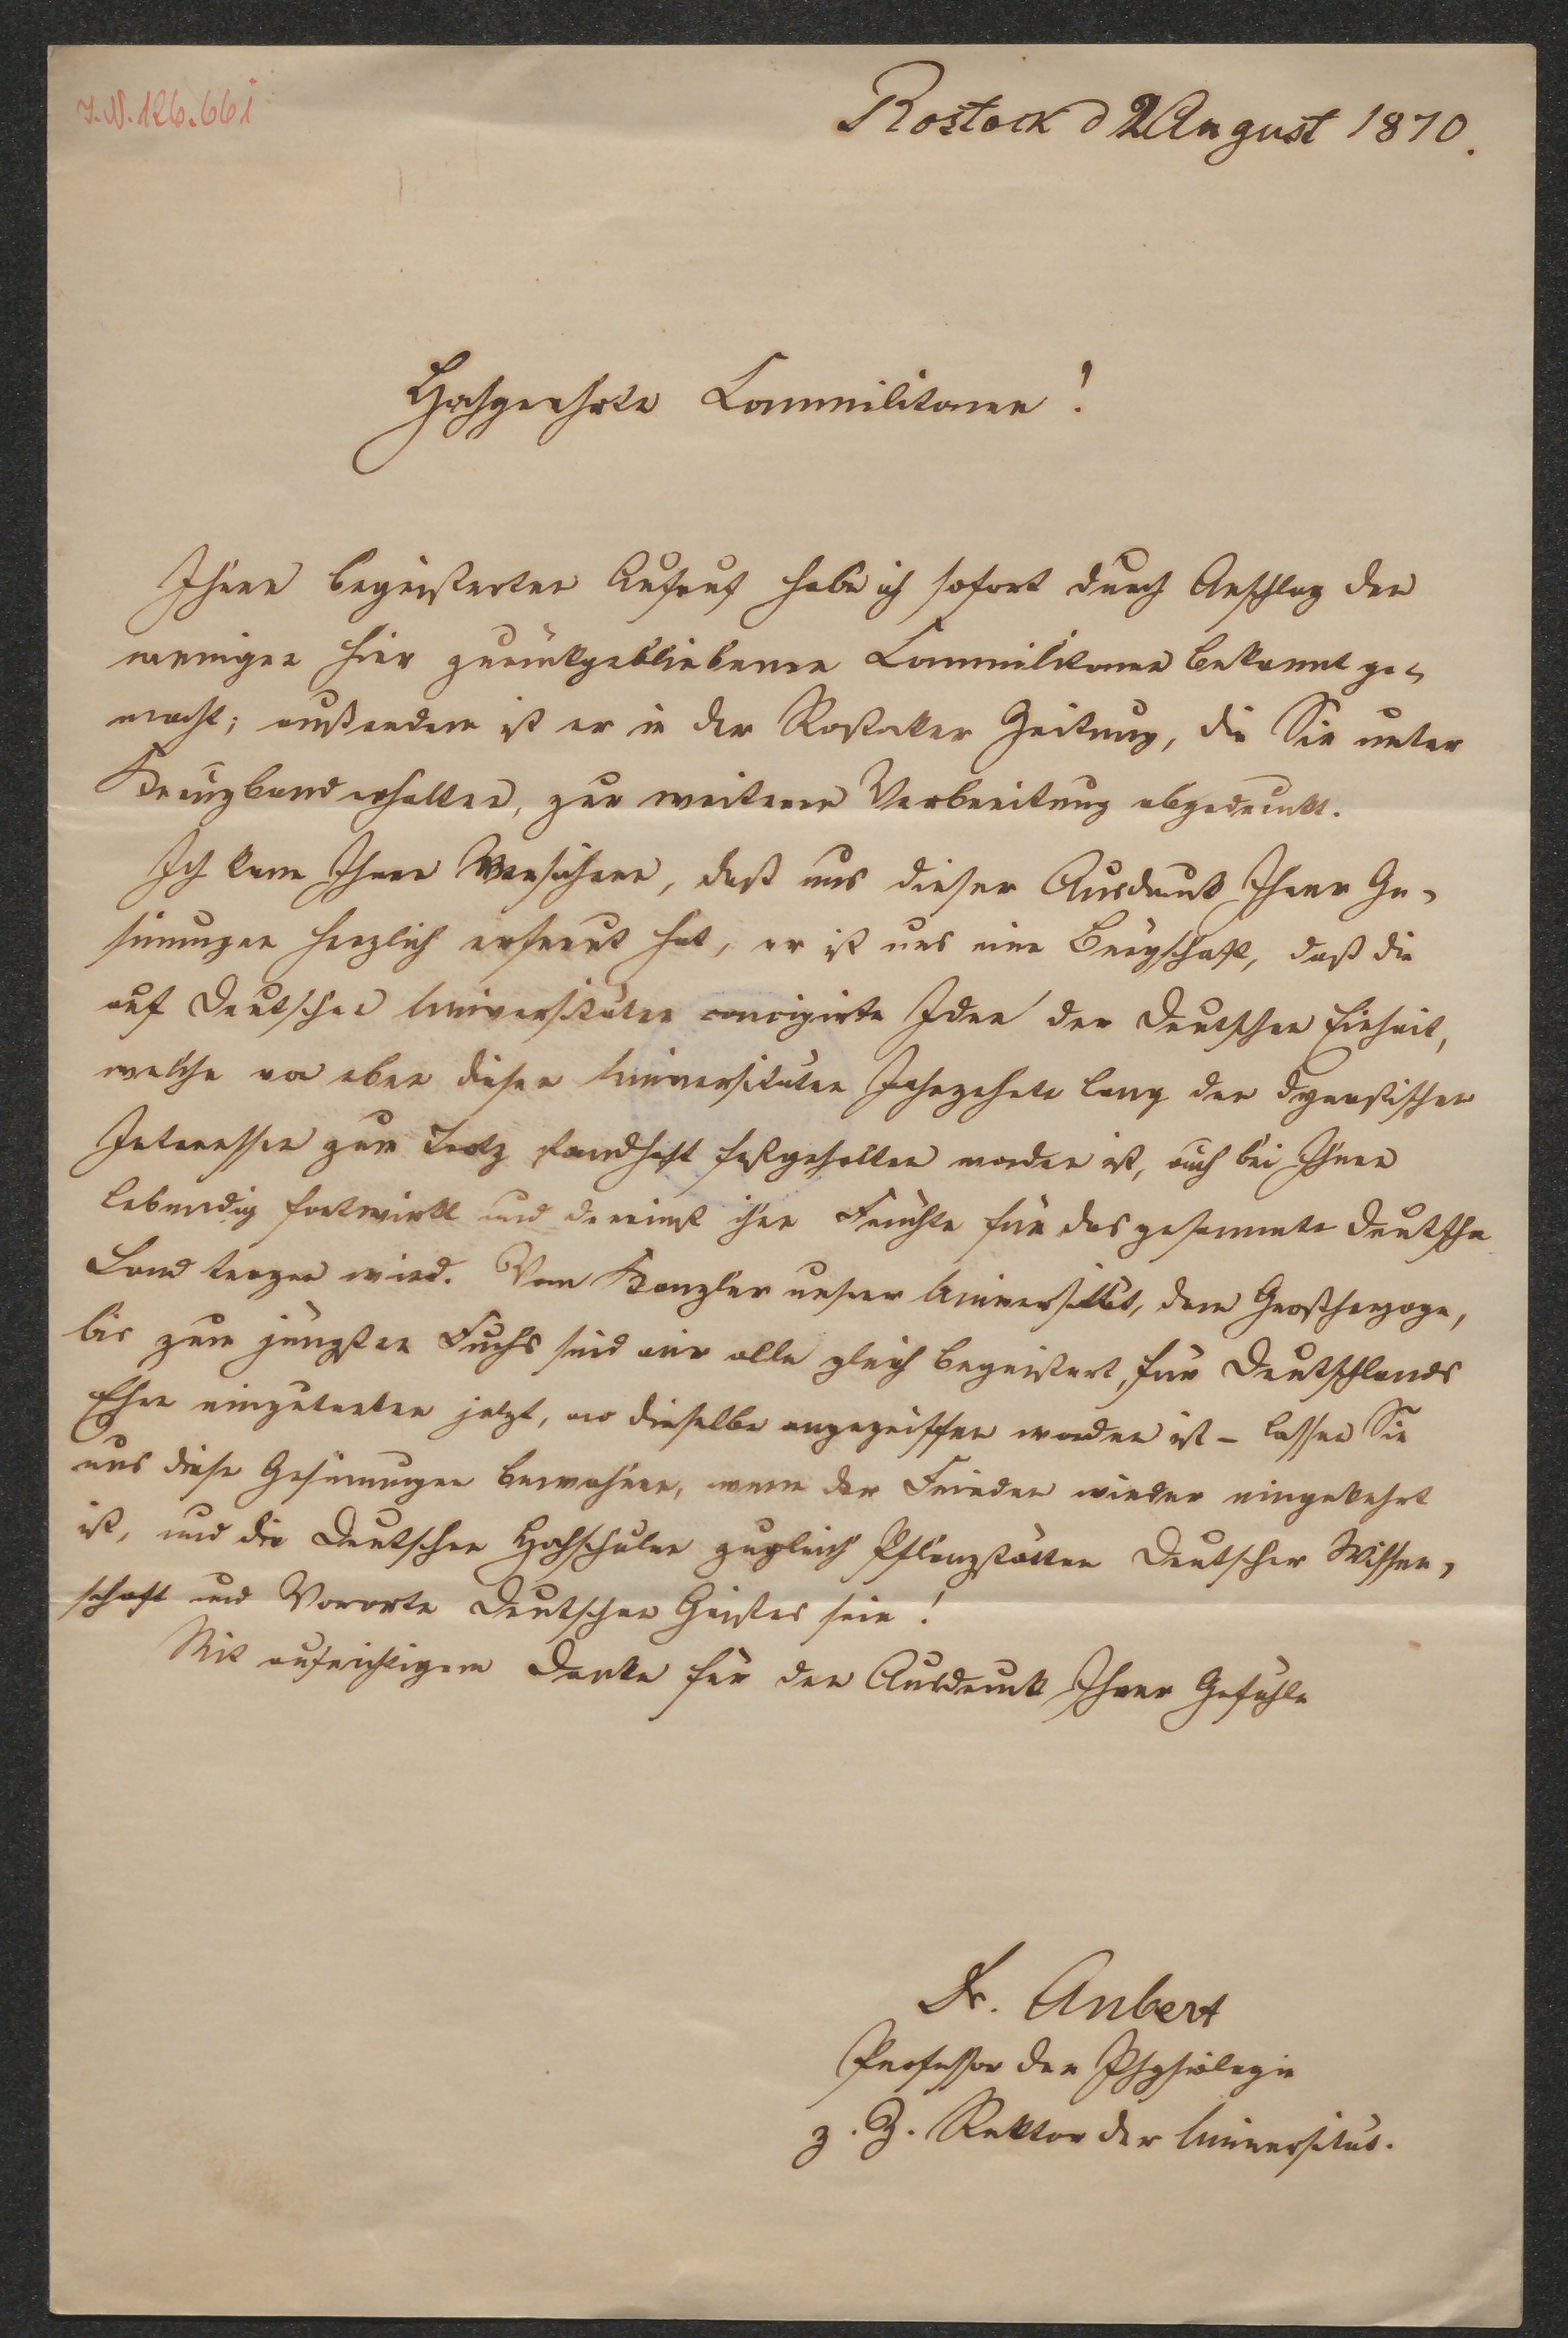 I.N.126.661
Rostock d 2 August 1870.
Hochgeehrte Commilitonen!
Ihren begeisterten Aufruf habe ich sofort durch Anschlag den
wenigen hier zurückgebliebenen Commilitonen bekannt ge-
macht; außerdem ist er in der Rostocker Zeitung, die Sie unter
Kreuzband erhalten, zur weiteren Verbreitung abgedruckt.
Ich kann Ihnen versichern, daß uns dieser Ausdruck Ihrer Ge-
sinnungen herzlich erfreut hat, er ist uns eine Bürgschaft, daß die
auf Deutschen Universitäten Idee der Deutschen Einheit,
welche von eben diesen Universitäten Jahrzehnte lang den dynastischen
Interessen zum Trotz standhaft festgehalten worden ist, auch bei Ihnen
lebendig fortwirkt und dereinst ihre Früchte für das gesammte Deutsche
Land tragen wird. Vom Kanzler unsrer Universität, dem Großherzoge,
bis zum jüngsten Fuchs sind wir alle gleich begeistert, für Deutschlands
Ehre einzutreten jetzt, wo dieselbe angegriffen worden ist – lassen Sie
uns diese Gesinnungen bewahren, wenn der Frieden wieder eingekehrt
ist, und die Deutschen Hochschulen zugleich Pflanzstätten Deutscher Wissen-
schaft und Vororte Deutschen Geistes sein!
Mit aufrichtigem Danke für den Ausdruck Ihrer Gefühle
Dr. Aubert
Professor der Physiologie
z. Z. Rektor der Universität.